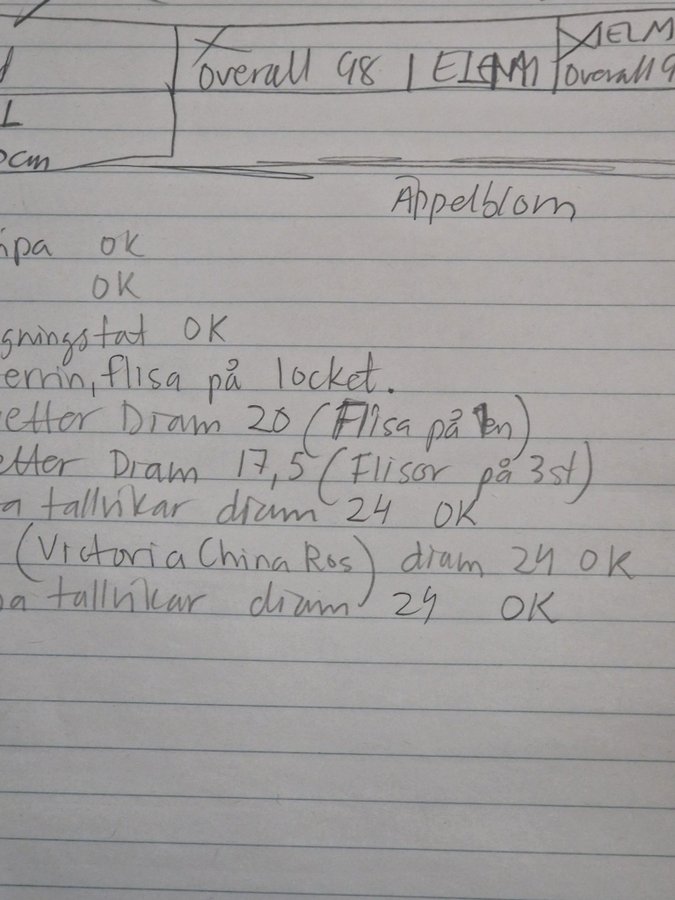 XELM
overall 98 | ELENM overall 9
L
cm
Äppelblom
ipa OK
OK
gningsfat OK
errin, flisa på locket.
etter Diam 20 (Flisa på en)
etter Diam 17,5 (Flisor på 3st)
a tallrikar diam 24 OK
(Victoria China Ros) diam 24 OK
pa tallrikar diam 24 OK